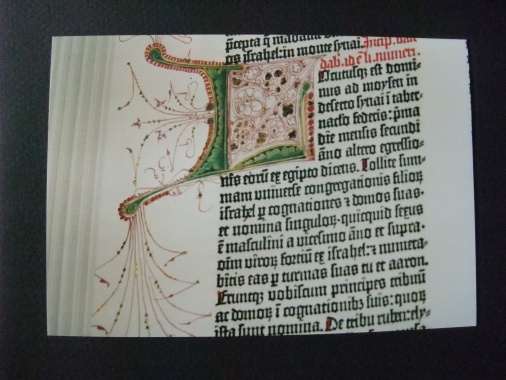 os israhel: in monte synai. Incip.
dab. id ē li. numeri.
Locutusq; est domi-
nus ad moysen in
deserto synai ī taber-
naclo federis: p̄ma
die mensis secundi
āno altero egressio-
nis eorū ex egipto dicens. Tollite sum-
mam universe congregationis filiorꝝ
israhel ꝑ cognationes ⁊ domos suas:
et nomina singulorꝝ. quicquid sexus
ē masculini a vicesimo āno et supra.
oīm virorꝝ fortiū ex israhel: ⁊ numera-
bitis eos ꝑ turmas suas tu et aaron.
Eruntq; vobiscum principes tribuū
ac domorꝝ ī cognationibꝰ suis: quorꝝ
ista sunt nomina. De tribu ruben: ely-